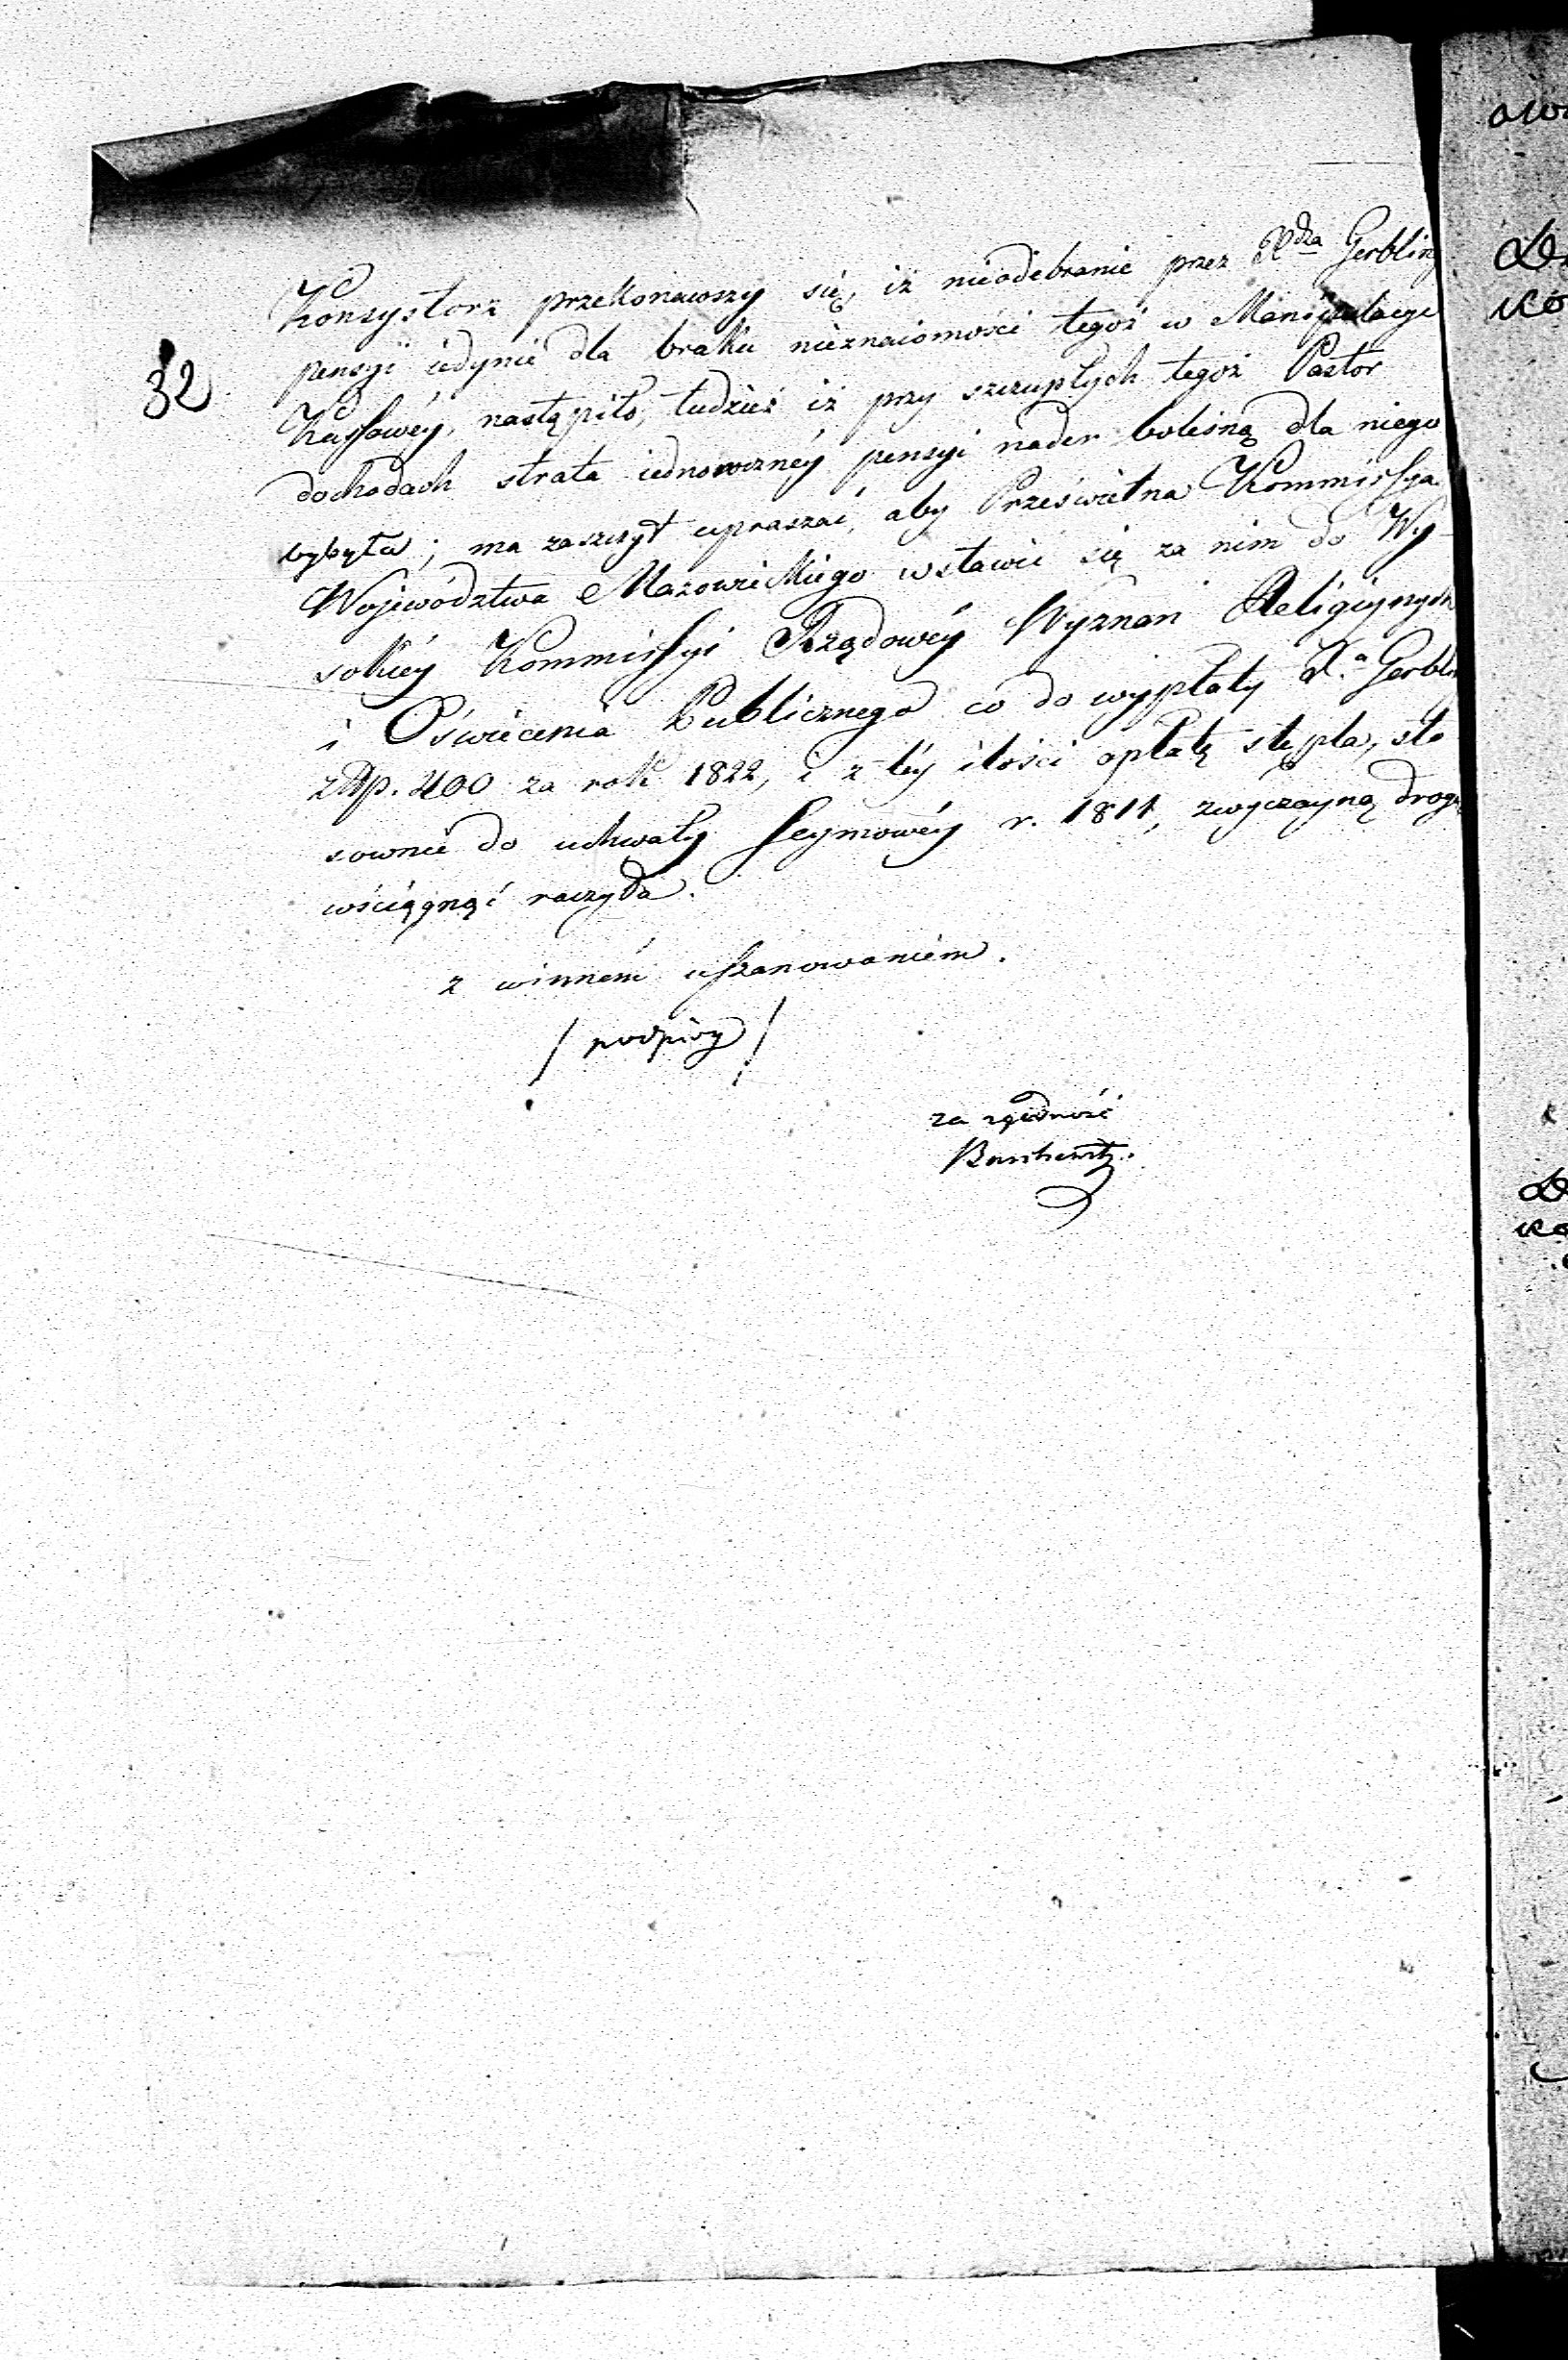 32
Konsystorz przekonawszy się, iż nieodebranie przez Xdza Gerbling
pensyi iedynie dla braku nieznaiomości tegoż w Manipulacyi
Kassowéy, nastąpiło, tudzież iż przy szczupłych tegoż Pastor
dochodach strata iednoroczněy pensyi nader bolesną dla niego
byłyła; ma zaszczyt upraszać, aby Prześwietna Kommissya
Województwa Mazowieckiego wstawić się za nim do Wy-
sokiéy Kommissyi Rządowéy Wyznań Religiynych
i Oświecenia Publicznego co do wypłaty X.a Gerbling
złłp. 400 za rok 1822, i z téy ilości opłatę stępla, sto
sownie do uchwały Seymowéy r. 1811, zwyczayną drogą
wściągnąć raczyła.
z winném uszanowaniem.
/ podpisy /
za zgodność